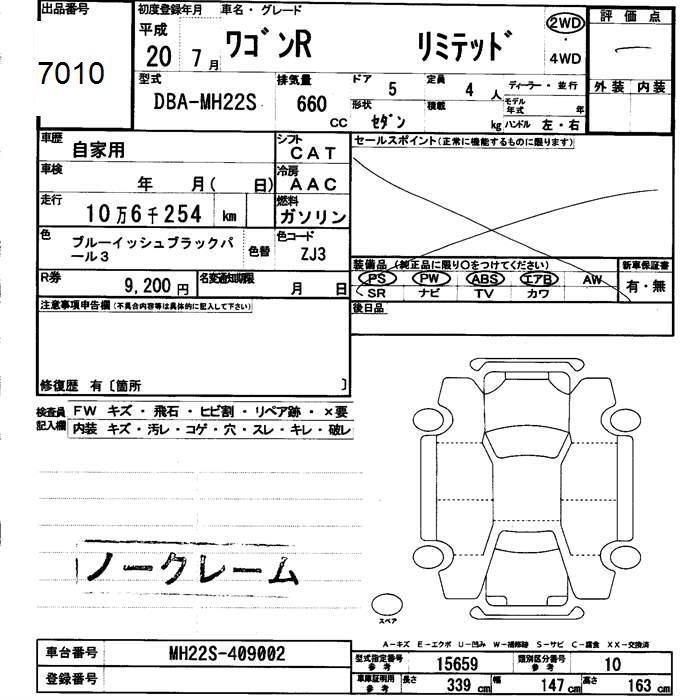 出品番号
7010
初度登録年月
平成
20 7月
車名・グレード
ワゴンR リミテッド
2WD
・
4WD
評価点
外装 内装
型式
DBA-MH22S
排気量
660
CC
ドア 5
定員 4 人
形状 セダン
積載 kg
ディーラー・並行
モデル年式 年
ハンドル 左・右
車歴
自家用
シフト
CAT
車検
年 月( 日)
冷房
AAC
走行
10万6千254 km
燃料
ガソリン
色
ブルーイッシュブラックパ
ール3
色替
色コード
ZJ3
R券
9,200円
名変通知期限
月 日
セールスポイント(正常に機能するものに限ります)
装備品(純正品に限り〇をつけてください)
PS PW ABS エアB AW
SR ナビ TV カワ
新車保証書
有・無
後日品
注意事項申告欄(不具合内容等は具体的に記入して下さい)
修復歴 有〔箇所 〕
検査員
記入欄
FW キズ・飛石・ヒビ割・リペア跡・×要
内装 キズ・汚レ・コゲ・穴・スレ・キレ・破レ
ノークレーム
スペア
A-キズ E-エクボ U-凹み W-補修跡 S-サビ C-腐食 XX-交換済
車台番号
MH22S-409002
登録番号
型式指定番号
参考
15659
類別区分番号
参考
10
車庫証明用
参考
長さ 339 cm
幅 147 cm
高さ 163 cm